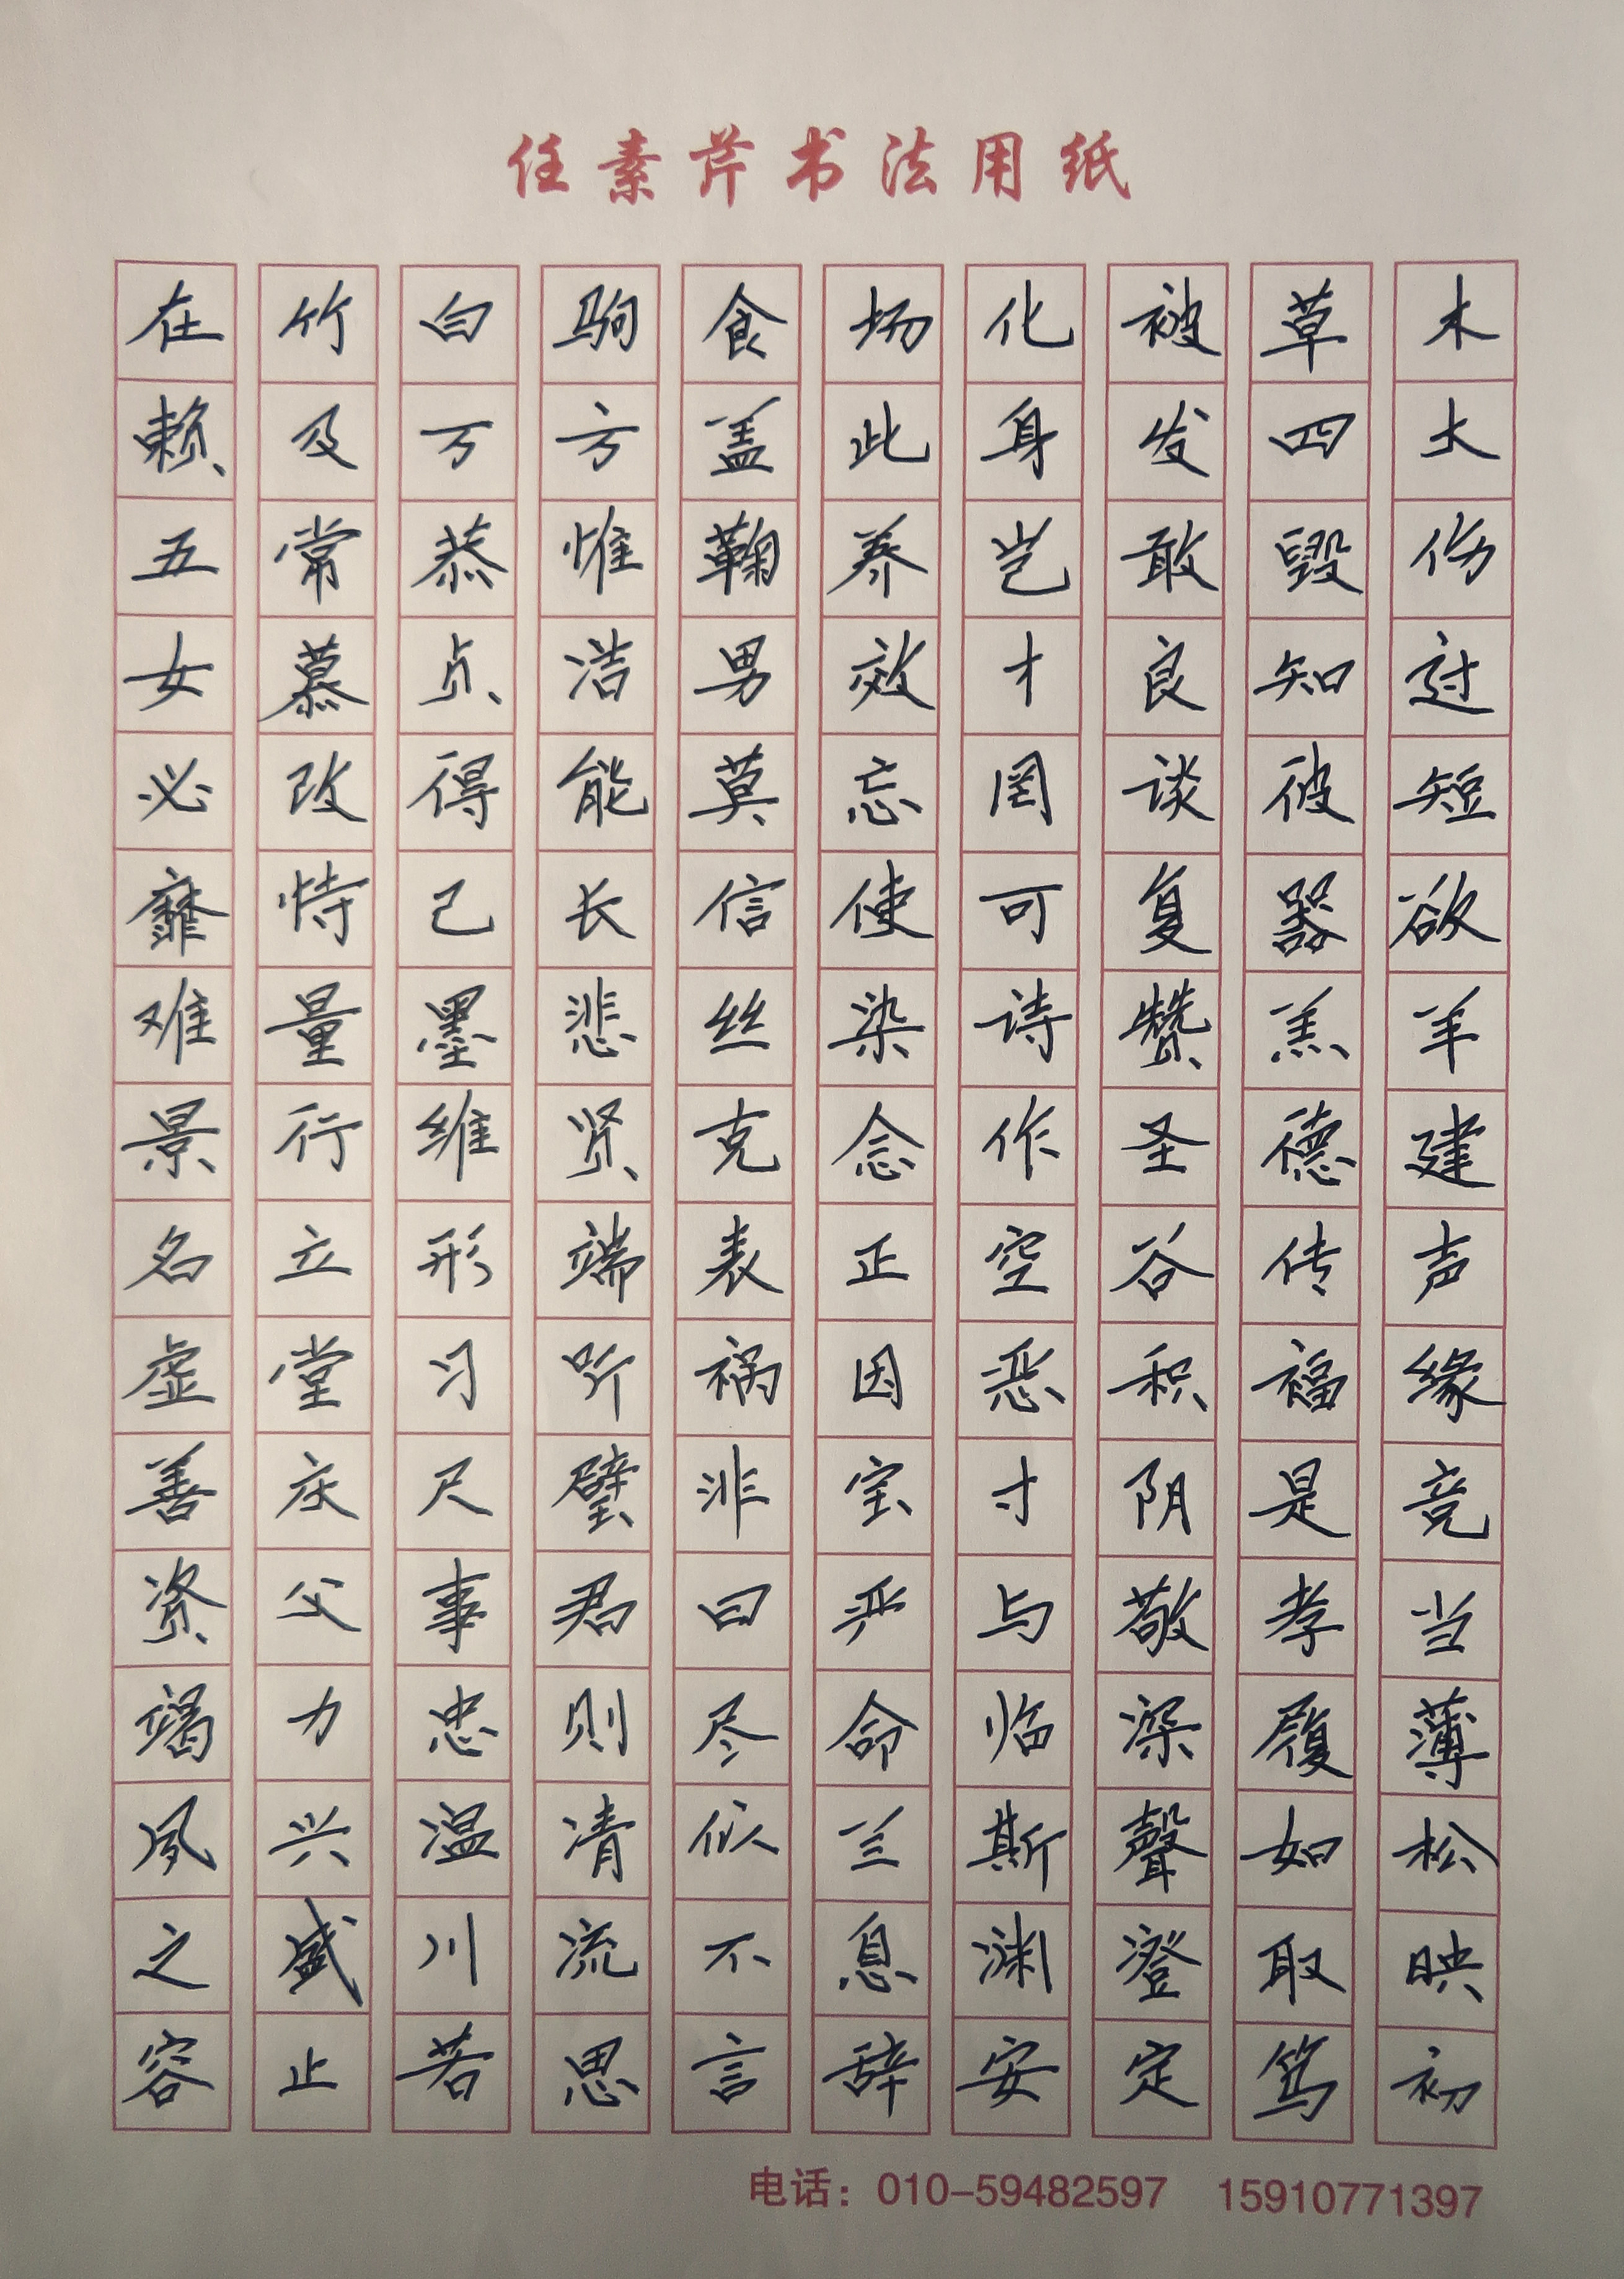 任素芹书法用纸
在竹白驹食场化被草木
赖及万方盖此身发四大
五常恭惟鞠养岂敢毁伤
女慕贞洁男效才良知过
必改得能莫忘罔谈彼短
靡恃己长信使可复器欲
难量墨悲丝染诗赞羔羊
景行维贤克念作圣德建
名立形端表正空谷传声
虚堂习听祸因恶积福缘
善庆尺璧非宝寸阴是竞
资父事君曰严与敬孝当
竭力忠则尽命临深履薄
夙兴温清似兰斯聲如松
之盛川流不息渊澄取映
容止若思言辞安定笃初
电话：010-59482597 15910771397